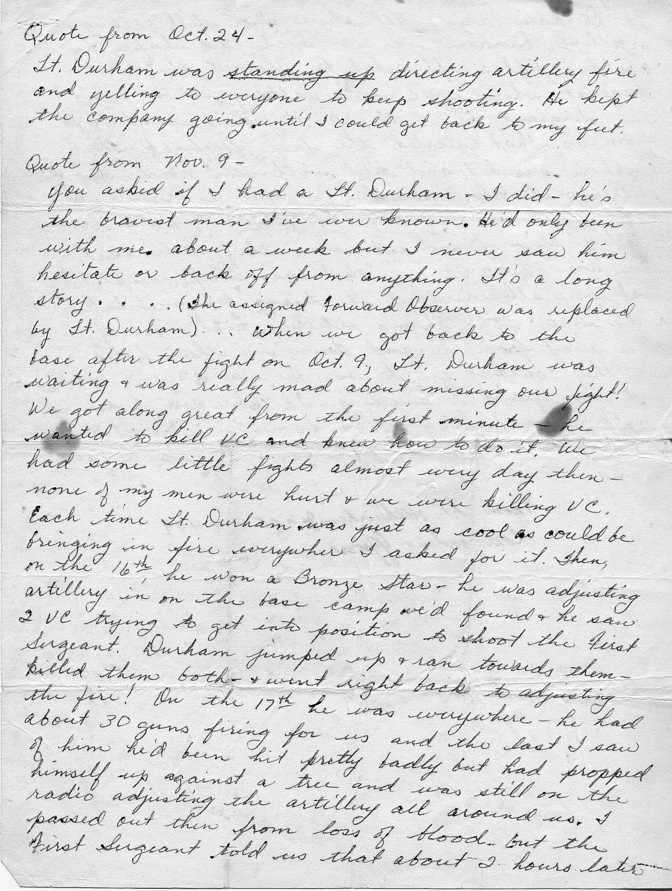 Quote from Oct. 24-
Lt. Durham was standing up directing artillery fire
and yelling to everyone to keep shooting. He kept
the company going until I could get back to my feet.
Quote from Nov. 9-
You asked if I had a Lt. Durham - I did - he's
the bravest man I've ever known. He'd only been
with me. about a week but I never saw him
hesitate or back off from anything. It's a long
story . . . . (The assigned Forward Observer was replaced
by Lt. Durham) . . . When we got back to the
base after the fight on Oct. 9, Lt. Durham was
waiting & was really mad about missing our fight!
We got along great from the first minute - he
wanted to kill VC and knew how to do it. We
had some little fights almost every day then -
none of my men were hurt & we were killing VC.
Each time Lt. Durham was just as cool as could be
bringing in fire everywher I asked for it. Then,
on the 16th, he won a Bronze Star - he was adjusting
artillery in on the base camp we'd found & he saw
2 VC trying to get into position to shoot the First
Sergeant. Durham jumped up & ran towards them -
killed them both - & went right back to adjusting
the fire! On the 17th he was everywhere - he had
about 30 guns firing for us and the last I saw
of him he'd been hit pretty badly but had propped
himself up against a tree and was still on the
radio adjusting the artillery all around us. I
passed out then from loss of blood - but the
First Sergeant told us that about 2 hours later